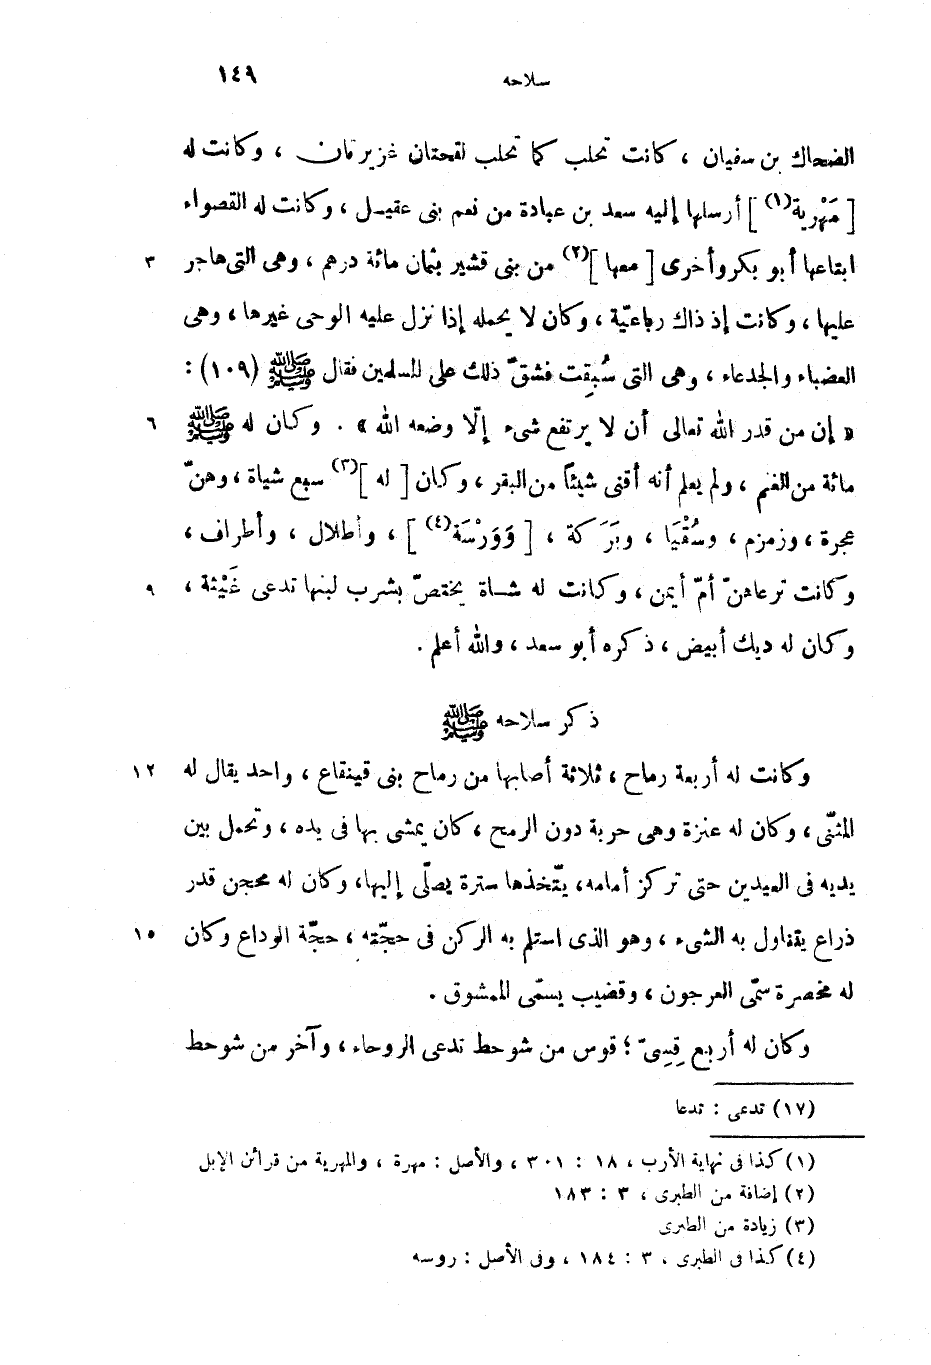 سلاحه ١٤٩
الضحاك بن سفيان ، كانت تحلب كما تحلب لقحتان غزيرتان ، وكانت له
[ مَهْرية(١) ] أرسلها إليه سعد بن عبادة من نعم بنى عقيـل ، وكانت له القصواء
ابتاعها أبو بكر وأخرى [ معها ](٢) من بنى قشير بثمان مائة درهم ، وهى التى هاجر ٣
عليها ، وكانت إذ ذاك رباعيّة ، وكان لا يحمله إذا نزل عليه الوحى غيرها ، وهى
العضباء والجدعاء ، وهى التى سُبِقت فشقّ ذلك على المسلمين فقال ﷺ (١٠٩) :
« إن من قدر الله تعالى أن لا يرتفع شىء إلّا وضعه الله » . وكان له ﷺ ٦
مائة من الغنم ، ولم يعلم أنه أقنى شيئاً من البقر ، وكان [ له ](٣) سبع شياة ، وهنّ
عجرة ، وزمزم ، وسُقْيَا ، وبَرَكة ، [ وَوَرْسَة(٤) ] ، وأطلال ، وأطراف ،
وكانت ترعاهنّ أمّ أيمن ، وكانت له شـاة يختصّ بشرب لبنها تدعى غَيْثة ، ٩
وكان له ديك أبيض ، ذكره أبو سعد ، والله أعلم .
ذكر سلاحه ﷺ
وكانت له أربعة رماح ، ثلاثة أصابها من رماح بنى قينقاع ، واحد يقال له ١٢
المثنّى ، وكان له عنزة وهى حربة دون الرمح ، كان يمشى بها فى يده ، وتحمل بين
يديه فى العيدين حتى تركز أمامه، يتّخذها سترة يصلّى إليها، وكان له محجن قدر
ذراع يتناول به الشىء ، وهو الذى استلم به الركن فى حجّته ، حجّة الوداع وكان ١٥
له مخصرة سمّى العرجون ، وقضيب يسمّى الممشوق .
وكان له أربع قِسِىّ ؛ قوس من شوحط تدعى الروحاء ، وآخر من شوحط
(١٧) تدعى : تدعا
(١) كذا فى نهاية الأرب ، ١٨ : ٣٠١ ، والأصل : مهرة ، والمهرية من قرائن الإبل
(٢) إضافة من الطبرى ، ٣ : ١٨٣
(٣) زيادة من الطبرى
(٤) كذا فى الطبرى ، ٣ : ١٨٤ ، وفى الأصل : روسه